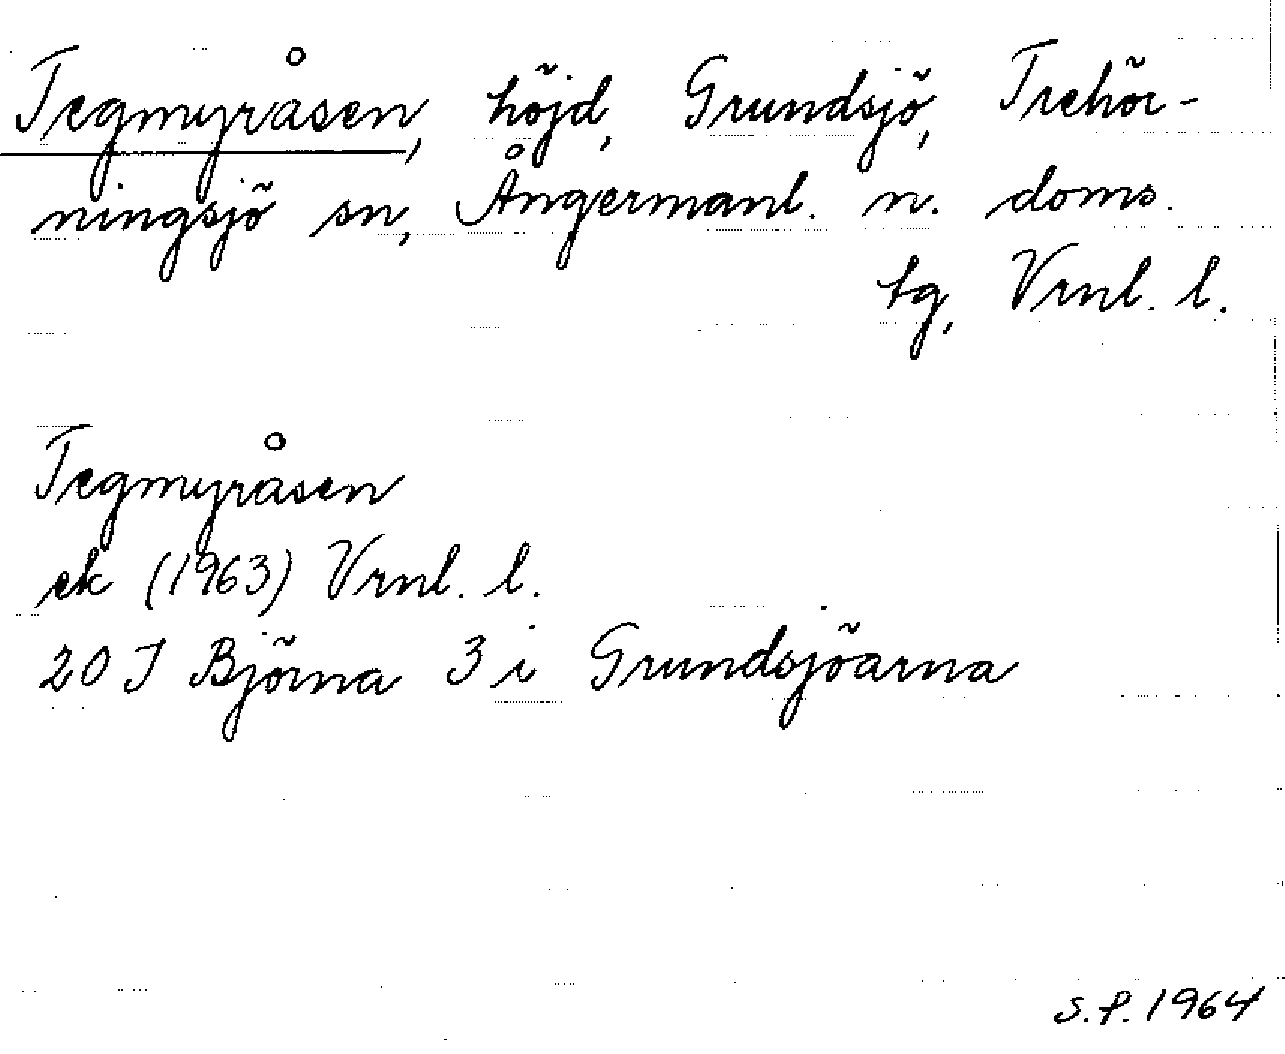 Tegmyråsen, höjd, Grundsjö, Trehör-
ningsjö sn, Ångermanl. n. doms.
tg, Vrnl. l.
Tegmyråsen
ek (1963) Vrnl. l.
20 J Björna 3 i Grundsjöarna
S.P. 1964